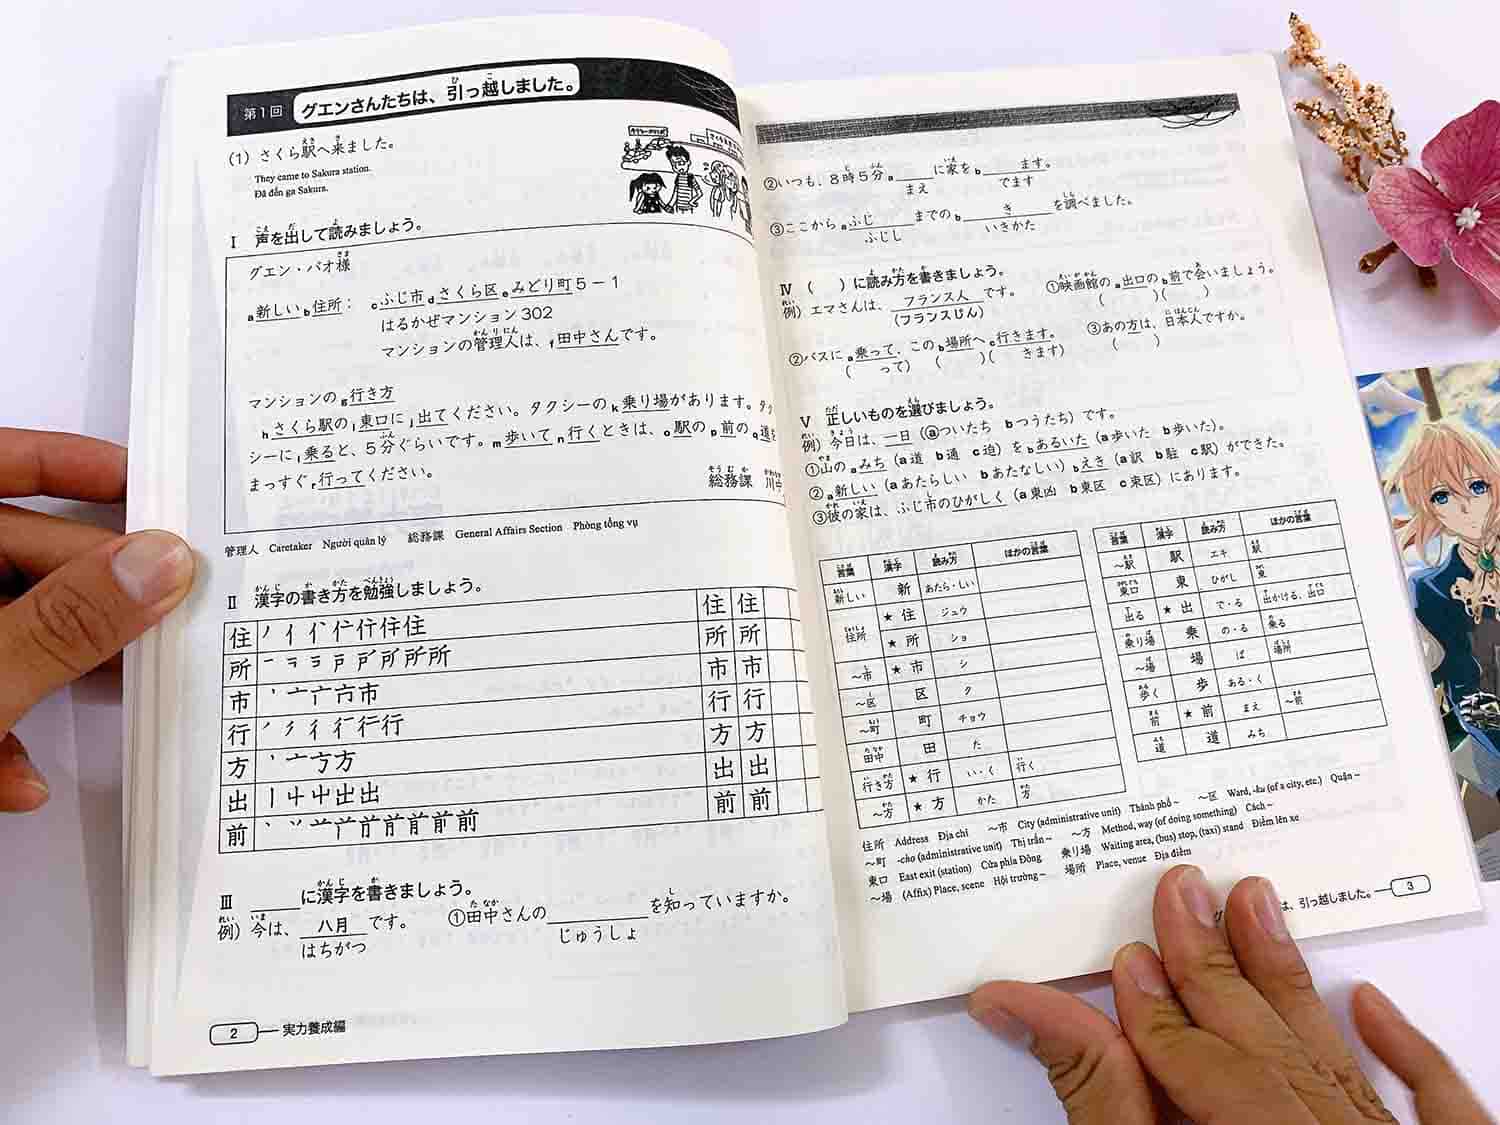 第1回 グエンさんたちは、引っ越しました。
(1) さくら駅へ来ました。
They came to Sakura station.
Đã đến ga Sakura.
Ⅰ 声を出して読みましょう。
グエン・バオ様
a新しいb住所： cふじ市dさくら区eみどり町5－1
はるかぜマンション302
マンションの管理人は、f田中さんです。
マンションのg行き方
hさくら駅のi東口にj出てください。タクシーのk乗り場があります。タク
シーにl乗ると、5分ぐらいです。m歩いてn行くときは、o駅のp前のq道を
まっすぐr行ってください。
総務課
管理人 Caretaker Người quản lý 総務課 General Affairs Section Phòng tổng vụ
Ⅱ 漢字の書き方を勉強しましょう。
住 住 住
所 所 所
市 市 市
行 行 行
方 方 方
出 出 出
前 前 前
Ⅲ ＿＿に漢字を書きましょう。
例) 今は、八月です。 ①田中さんの＿＿＿を知っていますか。
はちがつ じゅうしょ
2 実力養成編
②いつも、8時5分a＿＿に家をb＿＿ます。
まえ でます
③ここからaふじ＿＿までのb＿き＿を調べました。
ふじし いきかた
Ⅳ ( )に読み方を書きましょう。
例) エマさんは、フランス人です。 ①映画館のa出口のb前で会いましょう。
(フランスじん) ( )( )
②バスにa乗って、このb場所へc行きます。 ③あの方は、日本人ですか。
( って) ( )( きます) ( )
Ⅴ 正しいものを選びましょう。
例) 今日は、一日 (ⓐついたち bつうたち) です。
①山のaみち (a道 b通 c迫) をbあるいた (a歩いた b歩いた)。
②a新しい (aあたらしい bあたなしい) bえき (a訳 b駐 c駅) ができた。
③彼の家は、ふじ市のひがしく (a東凶 b東区 c東区) にあります。
言葉 漢字 読み方 ほかの言葉
新しい 新 あたら・しい
住所 ★住 ジュウ
★所 ショ
～市 ★市 シ
～区 区 ク
～町 町 チョウ
田中 田 た
行き方 ★行 い・く 行く
～方 ★方 かた 方
言葉 漢字 読み方 ほかの言葉
～駅 駅 エキ 駅
東口 東 ひがし 東
出る ★出 で・る 出かける、出口
乗り場 乗 の・る 乗る
～場 場 ば 場所
歩く 歩 ある・く
前 ★前 まえ ～前
道 道 みち
住所 Address Địa chỉ ～市 City (administrative unit) Thành phố～ ～区 Ward, -ku (of a city, etc.) Quận～
～町 -cho (administrative unit) Thị trấn～ ～方 Method, way (of doing something) Cách～
東口 East exit (station) Cửa phía Đông 乗り場 Waiting area, (bus) stop, (taxi) stand Điểm lên xe
～場 (Affix) Place, scene Hội trường～ 場所 Place, venue Địa điểm
は、引っ越しました。 3